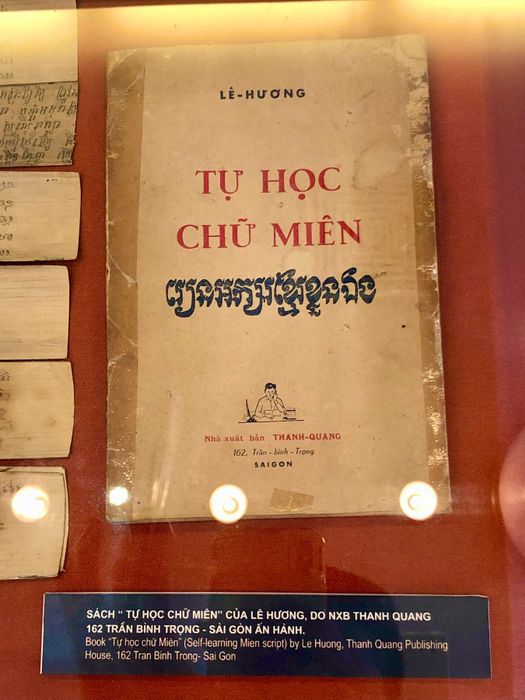 LÊ-HƯƠNG
TỰ HỌC
CHỮ MIÊN
រៀនអក្សរខ្មែរខ្លួនឯង
Nhà xuất bản THANH-QUANG
162, Trần-bình-Trọng
SAIGON
SÁCH “ TỰ HỌC CHỮ MIÊN” CỦA LÊ HƯƠNG, DO NXB THANH QUANG
162 TRẦN BÌNH TRỌNG - SÀI GÒN ẤN HÀNH.
Book “Tự học chữ Miên” (Self-learning Mien script) by Le Huong, Thanh Quang Publishing
House, 162 Tran Binh Trong- Sai Gon